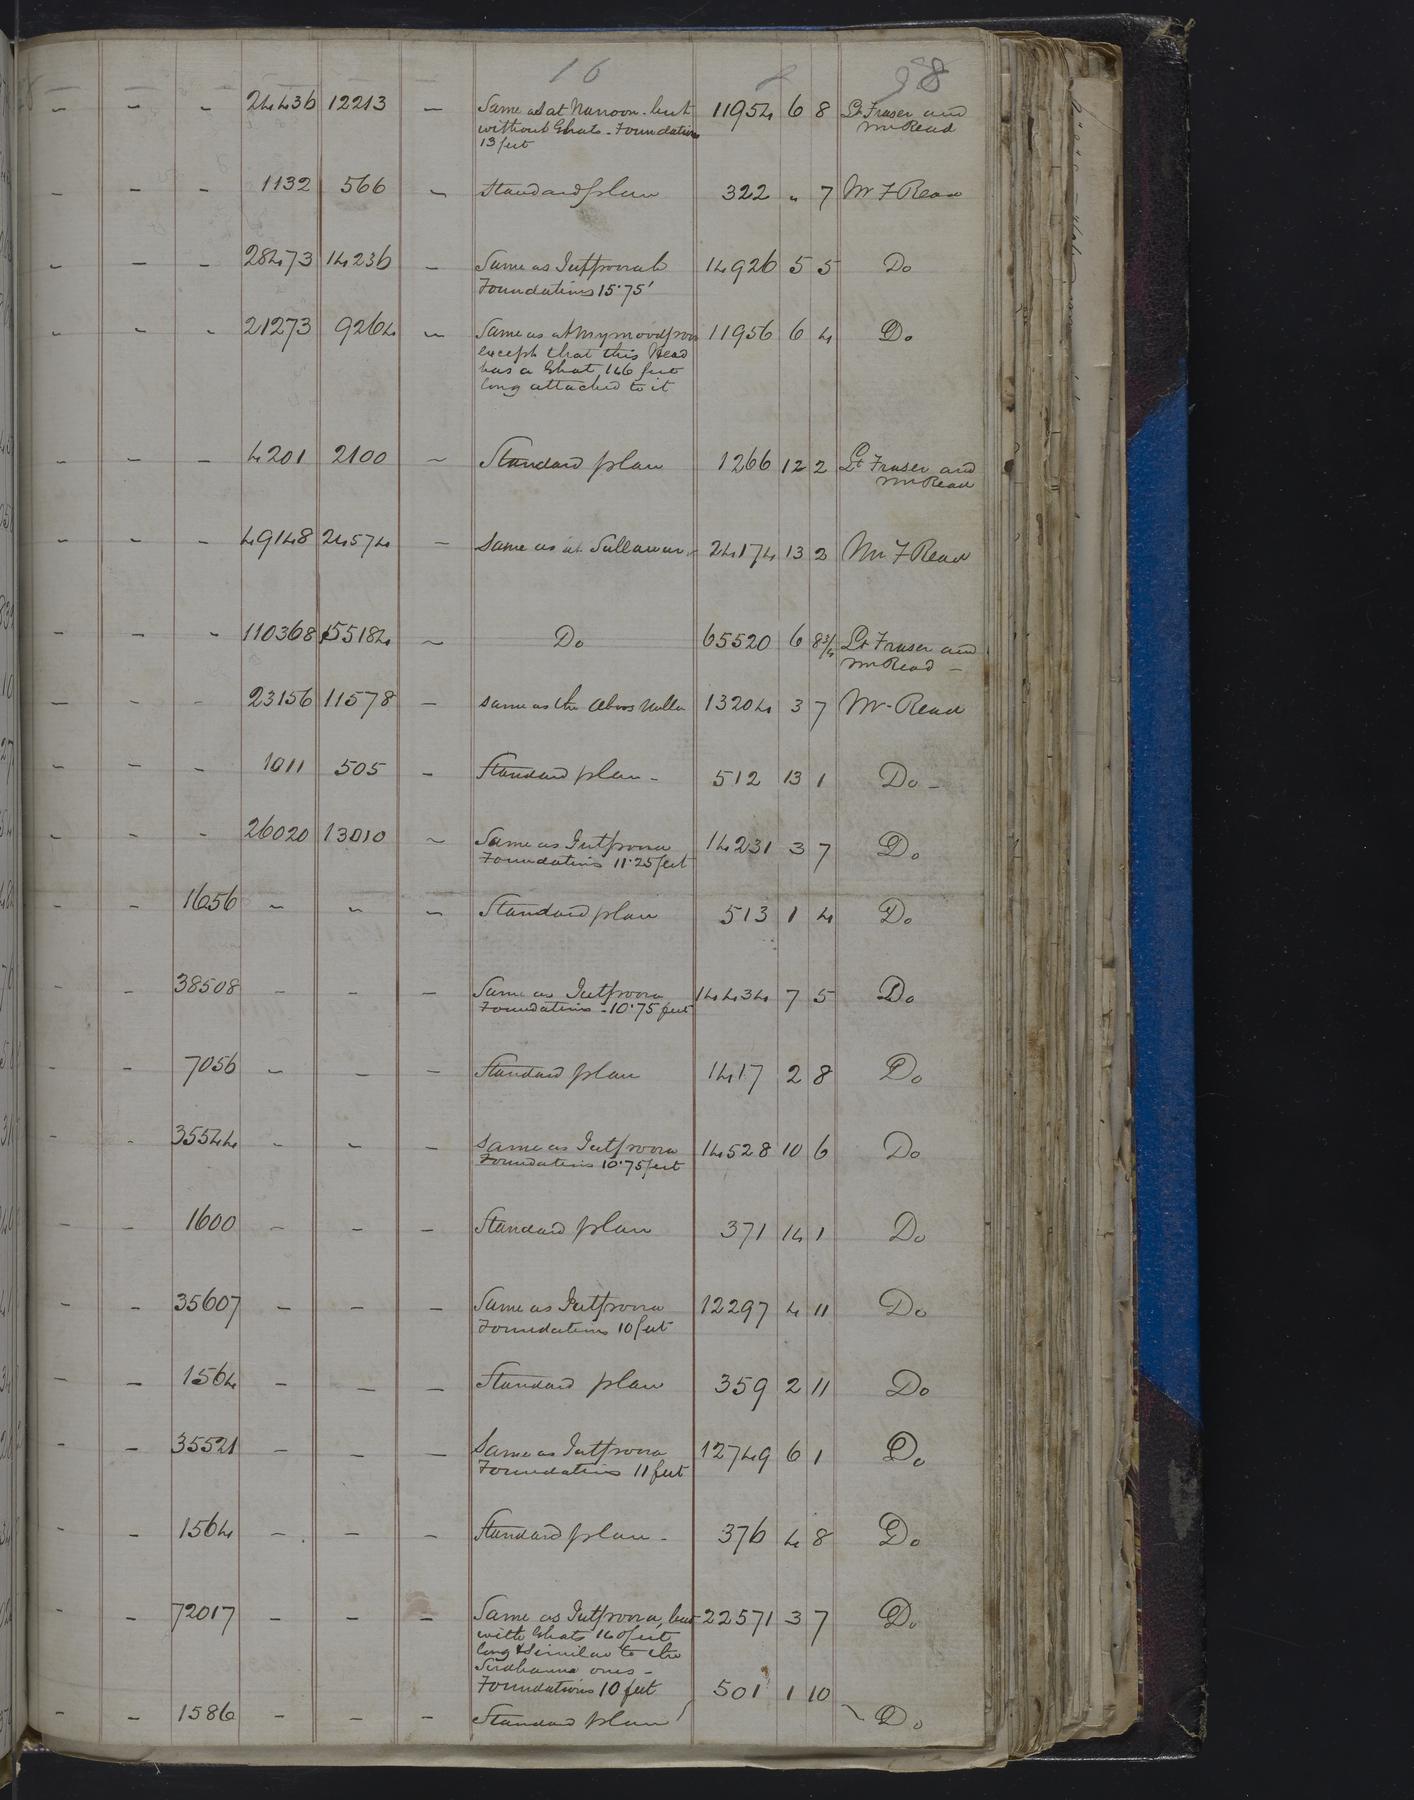 16 98
- - - 24436 12213 - Same as at Nanoon - but 11954 6 8 Lt Fraser and
without Ghats - Foundations Mr Read
13 feet
- - - 1132 566 - Standard plan 322 " 7 Mr F Read
- - - 28473 14236 - Same as Jutpoorah 14926 5 5 Do
Foundations 15.75'
- - - 21273 9264 - Same as at Mymoodpoor 11956 6 4 Do
except that this Head
has a Ghat, 146 feet
long attached to it
- - - 4201 2100 - Standard plan 1266 12 2 Lt Fraser and
Mr Read
- - - 49148 24574 - Same as at Sullawur 24174 13 2 Mr F Read
- - - 110368 55184 - Do 65520 6 8 3/4 Lt Fraser and
Mr Read -
- - - 23156 11578 - Same as the above 13204 3 7 Mr Read
- - - 1011 505 - Standard plan - 512 13 1 Do -
- - - 26020 13010 - Same as Jutpoora 14231 3 7 Do
Foundations 11.25 feet
- - 1656 - - - Standard plan 513 1 4 Do
- - 38508 - - - Same as Jutpoora 14434 7 5 Do
Foundations - 10.75 feet
- - 7056 - - - Standard plan 1417 2 8 Do
- - 35544 - - - Same as Jutpoora 14528 10 6 Do
Foundations 10.75 feet
- - 1600 - - - Standard plan 371 14 1 Do
- - 35607 - - - Same as Jutpoora 12297 4 11 Do
Foundations 10 feet
- - 1564 - - - Standard plan 359 2 11 Do
- - 35521 - - - Same as Jutpoora 12749 6 1 Do
Foundations 11 feet
- - 1564 - - - Standard plan - 376 4 8 Do
- - 72017 - - - Same as Jutpoora, but 22571 3 7 Do
with Ghats 140 feet
long & similar to the
Sirdhanna ones -
Foundations 10 feet 501 1 10
- - 1586 - - - Standard plan Do